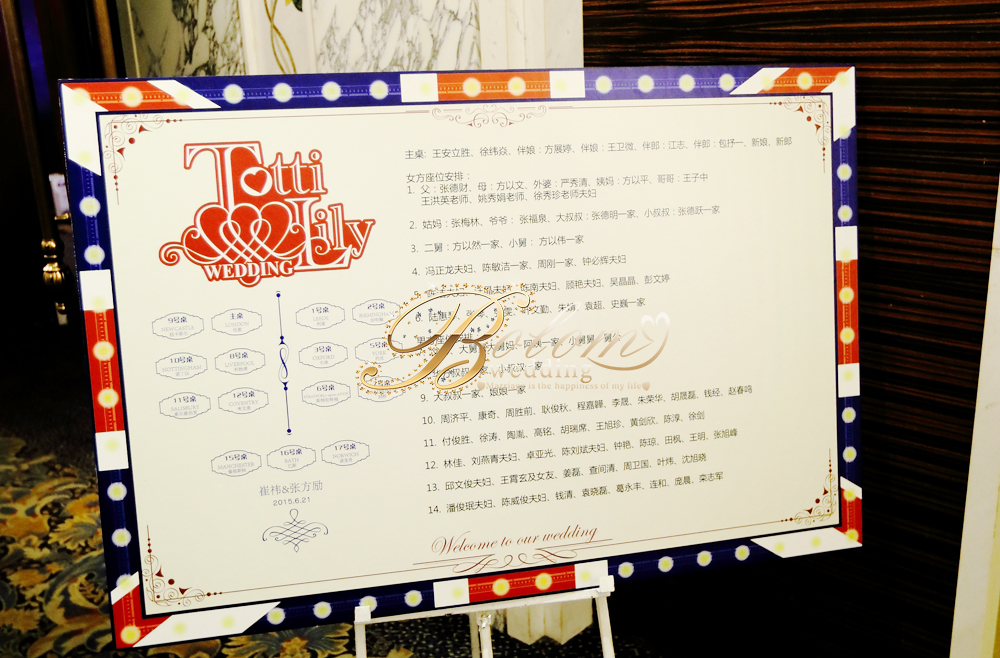 Totti
Lily
WEDDING
主桌：王安立胜、徐纬焱、伴娘：方展婷、伴娘：王卫微、伴郎：江志、伴郎：包抒一、新娘、新郎
女方座位安排：
1. 父：张德财、母：方以文、外婆：严秀清、姨妈：方以平、哥哥：王子中
王洪英老师、姚秀娟老师、徐秀珍老师夫妇
2. 姑妈：张梅林、爷爷：张福泉、大叔叔：张德明一家、小叔叔：张德跃一家
3. 二舅：方以然一家、小舅：方以伟一家
4. 冯正龙夫妇、陈敏洁一家、周刚一家、钟必辉夫妇
陈南夫妇、顾艳夫妇、吴晶晶、彭文婷
文勤、朱婧、袁超、史巍一家
小叔叔一家
9. 大叔叔一家、娘娘一家
10. 周济平、康奇、周胜前、耿俊秋、程嘉韡、李晟、朱荣华、胡晟磊、钱经、赵春鸣
11. 付俊胜、徐涛、陶胤、高铭、胡瑞席、王旭珍、黄剑欣、陈淳、徐剑
12. 林佳、刘燕青夫妇、卓亚光、陈刘斌夫妇、钟艳、陈琼、田枫、王玥、张旭峰
13. 邱文俊夫妇、王霄玄及女友、姜磊、查间清、周卫国、叶炜、沈旭晓
14. 潘俊珉夫妇、陈威俊夫妇、钱清、袁晓磊、葛永丰、连和、庞晨、栾志军
9号桌
NEWCASTLE
主桌
LONDON
1号桌
LEEDS
2号桌
10号桌
NOTTINGHAM
8号桌
LIVERPOOL
3号桌
OXFORD
5号桌
YORK
11号桌
SALISBURY
12号桌
COVENTRY
6号桌
15号桌
MANCHESTER
16号桌
BATH
17号桌
NORWICH
崔祎&张方励
2015.6.21
Welcome to our wedding
Bolom
wedding
Marriage is the happiness of my life